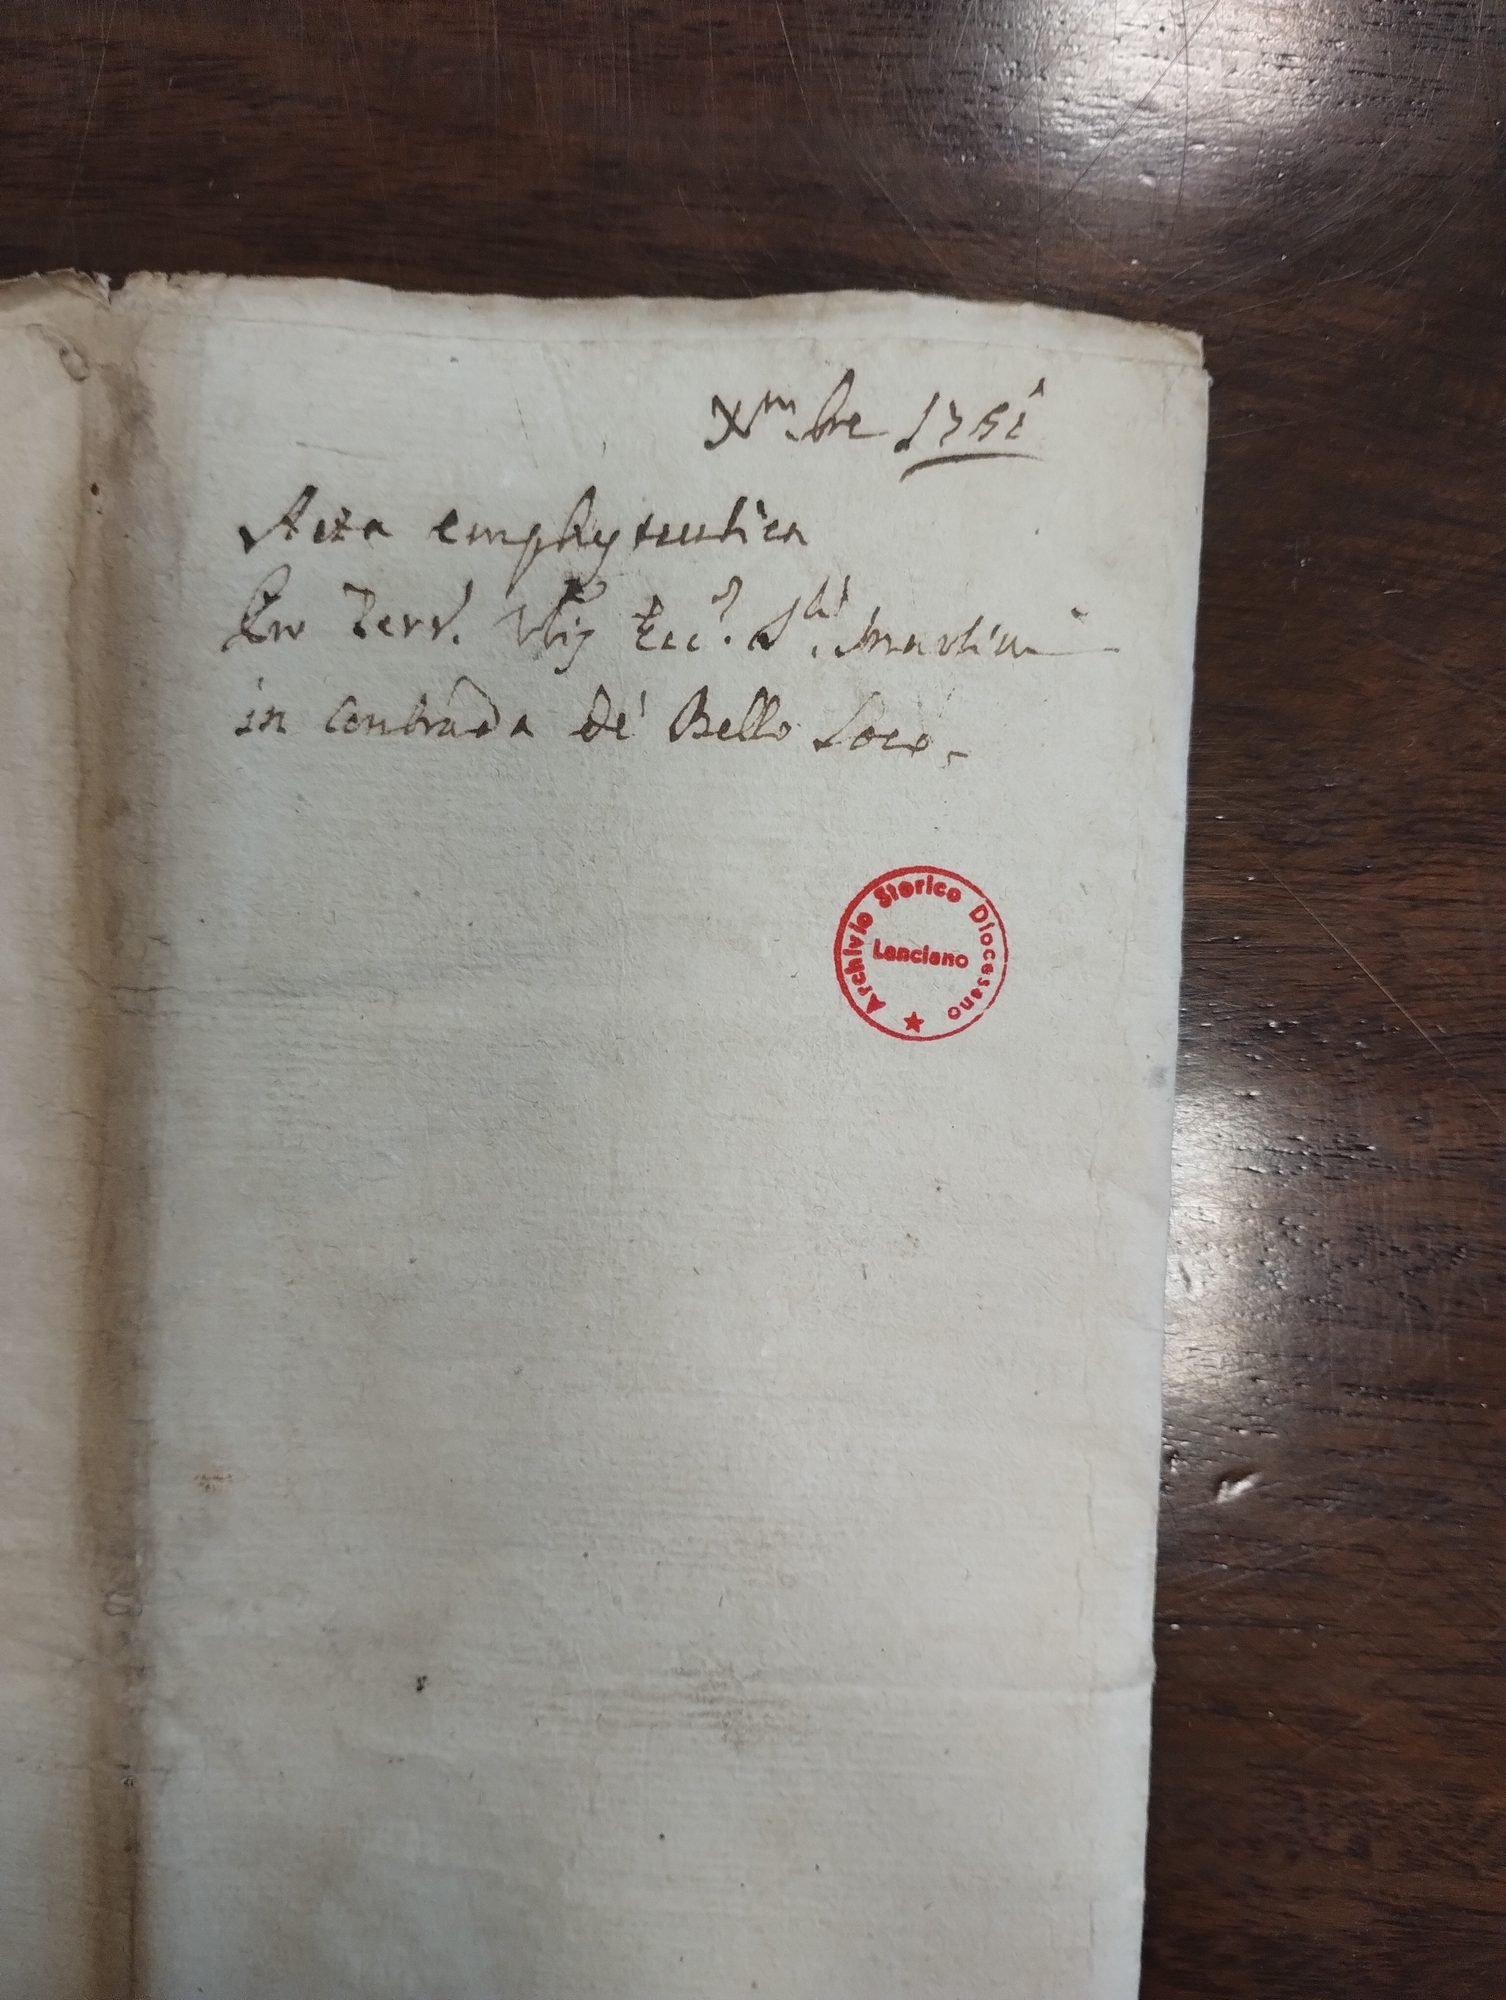 Xm.bre 1751
Acta emphyteutica
Pro Terr. Vlis Ecc. S.ti Martini
in contrada de Bello Loco.
Archivio Storico Diocesano
Lanciano